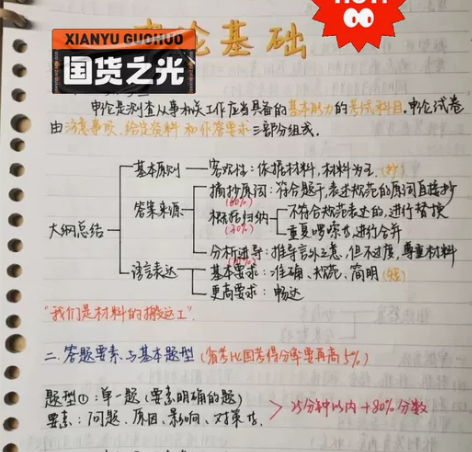 XIANYU GUOHUO
国货之光
论基础
申论是测查从事机关工作应当具备的基本能力的考试科目。申论试卷
由注意事项、给定资料和作答要求三部分组成。
大纲总结
基本原则 — 客观性：依据材料，材料为王（抄）
答案来源
摘抄原词：符合题干，表述规范的原词直接抄
(60%)
根据归纳
(30%)
不符合规范表达的，进行替换
重复啰嗦书，进行合并
分析进导：推导言外之意，但不过度，尊重材料
(10%)
语言表达
基本要求：准确、规范、简明
更高要求：畅达
"我们是材料的搬运工"。
二. 答题要素与基本题型（省考比国考得分率要再高5%）
题型①：单一题（要素明确的题）
要素：问题、原因、影响、对策等.
> 25分钟以内 + 80%分数